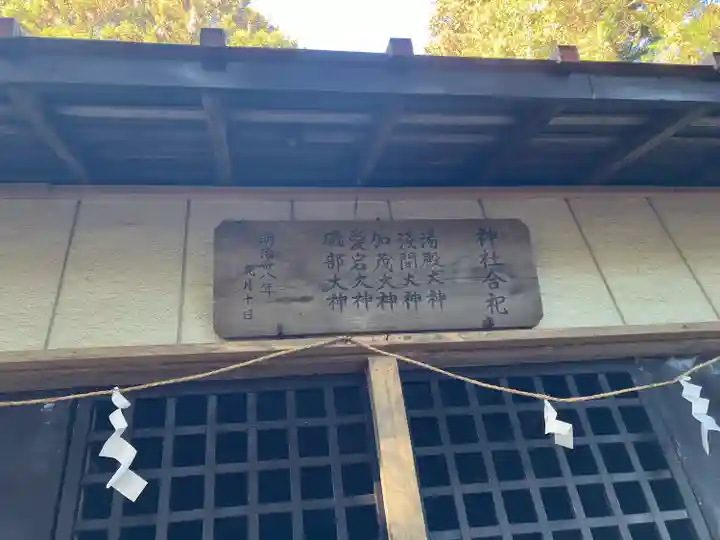 神社合祀
湯殿大神
浅間大神
加茂大神
愛宕大神
磯部大神
明治卅八年
月十日